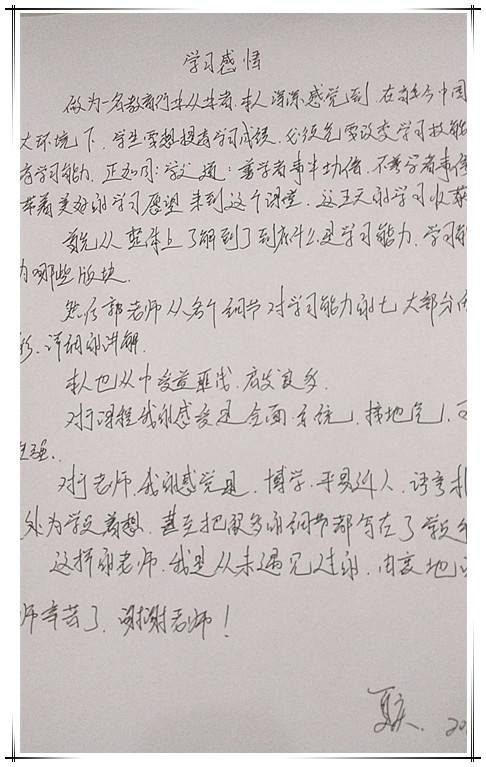 学习感悟
做为一名教育行业从业者,本人深深感觉到,在当今中国
大环境下,学生要想提高学习成绩,必须先要改变学习技能
高学习能力,正如同:学义通:善学者事半功倍,不善学者事倍
带着美好的学习愿望来到这个课堂,这五天的学习收获
首先从整体上了解到了到底什么是学习能力,学习能
为哪些版块.
然后郭老师从各个细节对学习能力的七大部分
彩、详细的讲解.
本人也从中受益匪浅.感发良多.
对于课程我的感受是全面.系统,接地气,可
性强.
对于老师,我的感觉是,博学.平易近人,语言
处为学员着想,甚至把很多的细节都写在了学员
这样的老师.我是从未遇见过的,由衷地说
师辛苦了,谢谢老师!
夏庆. 20